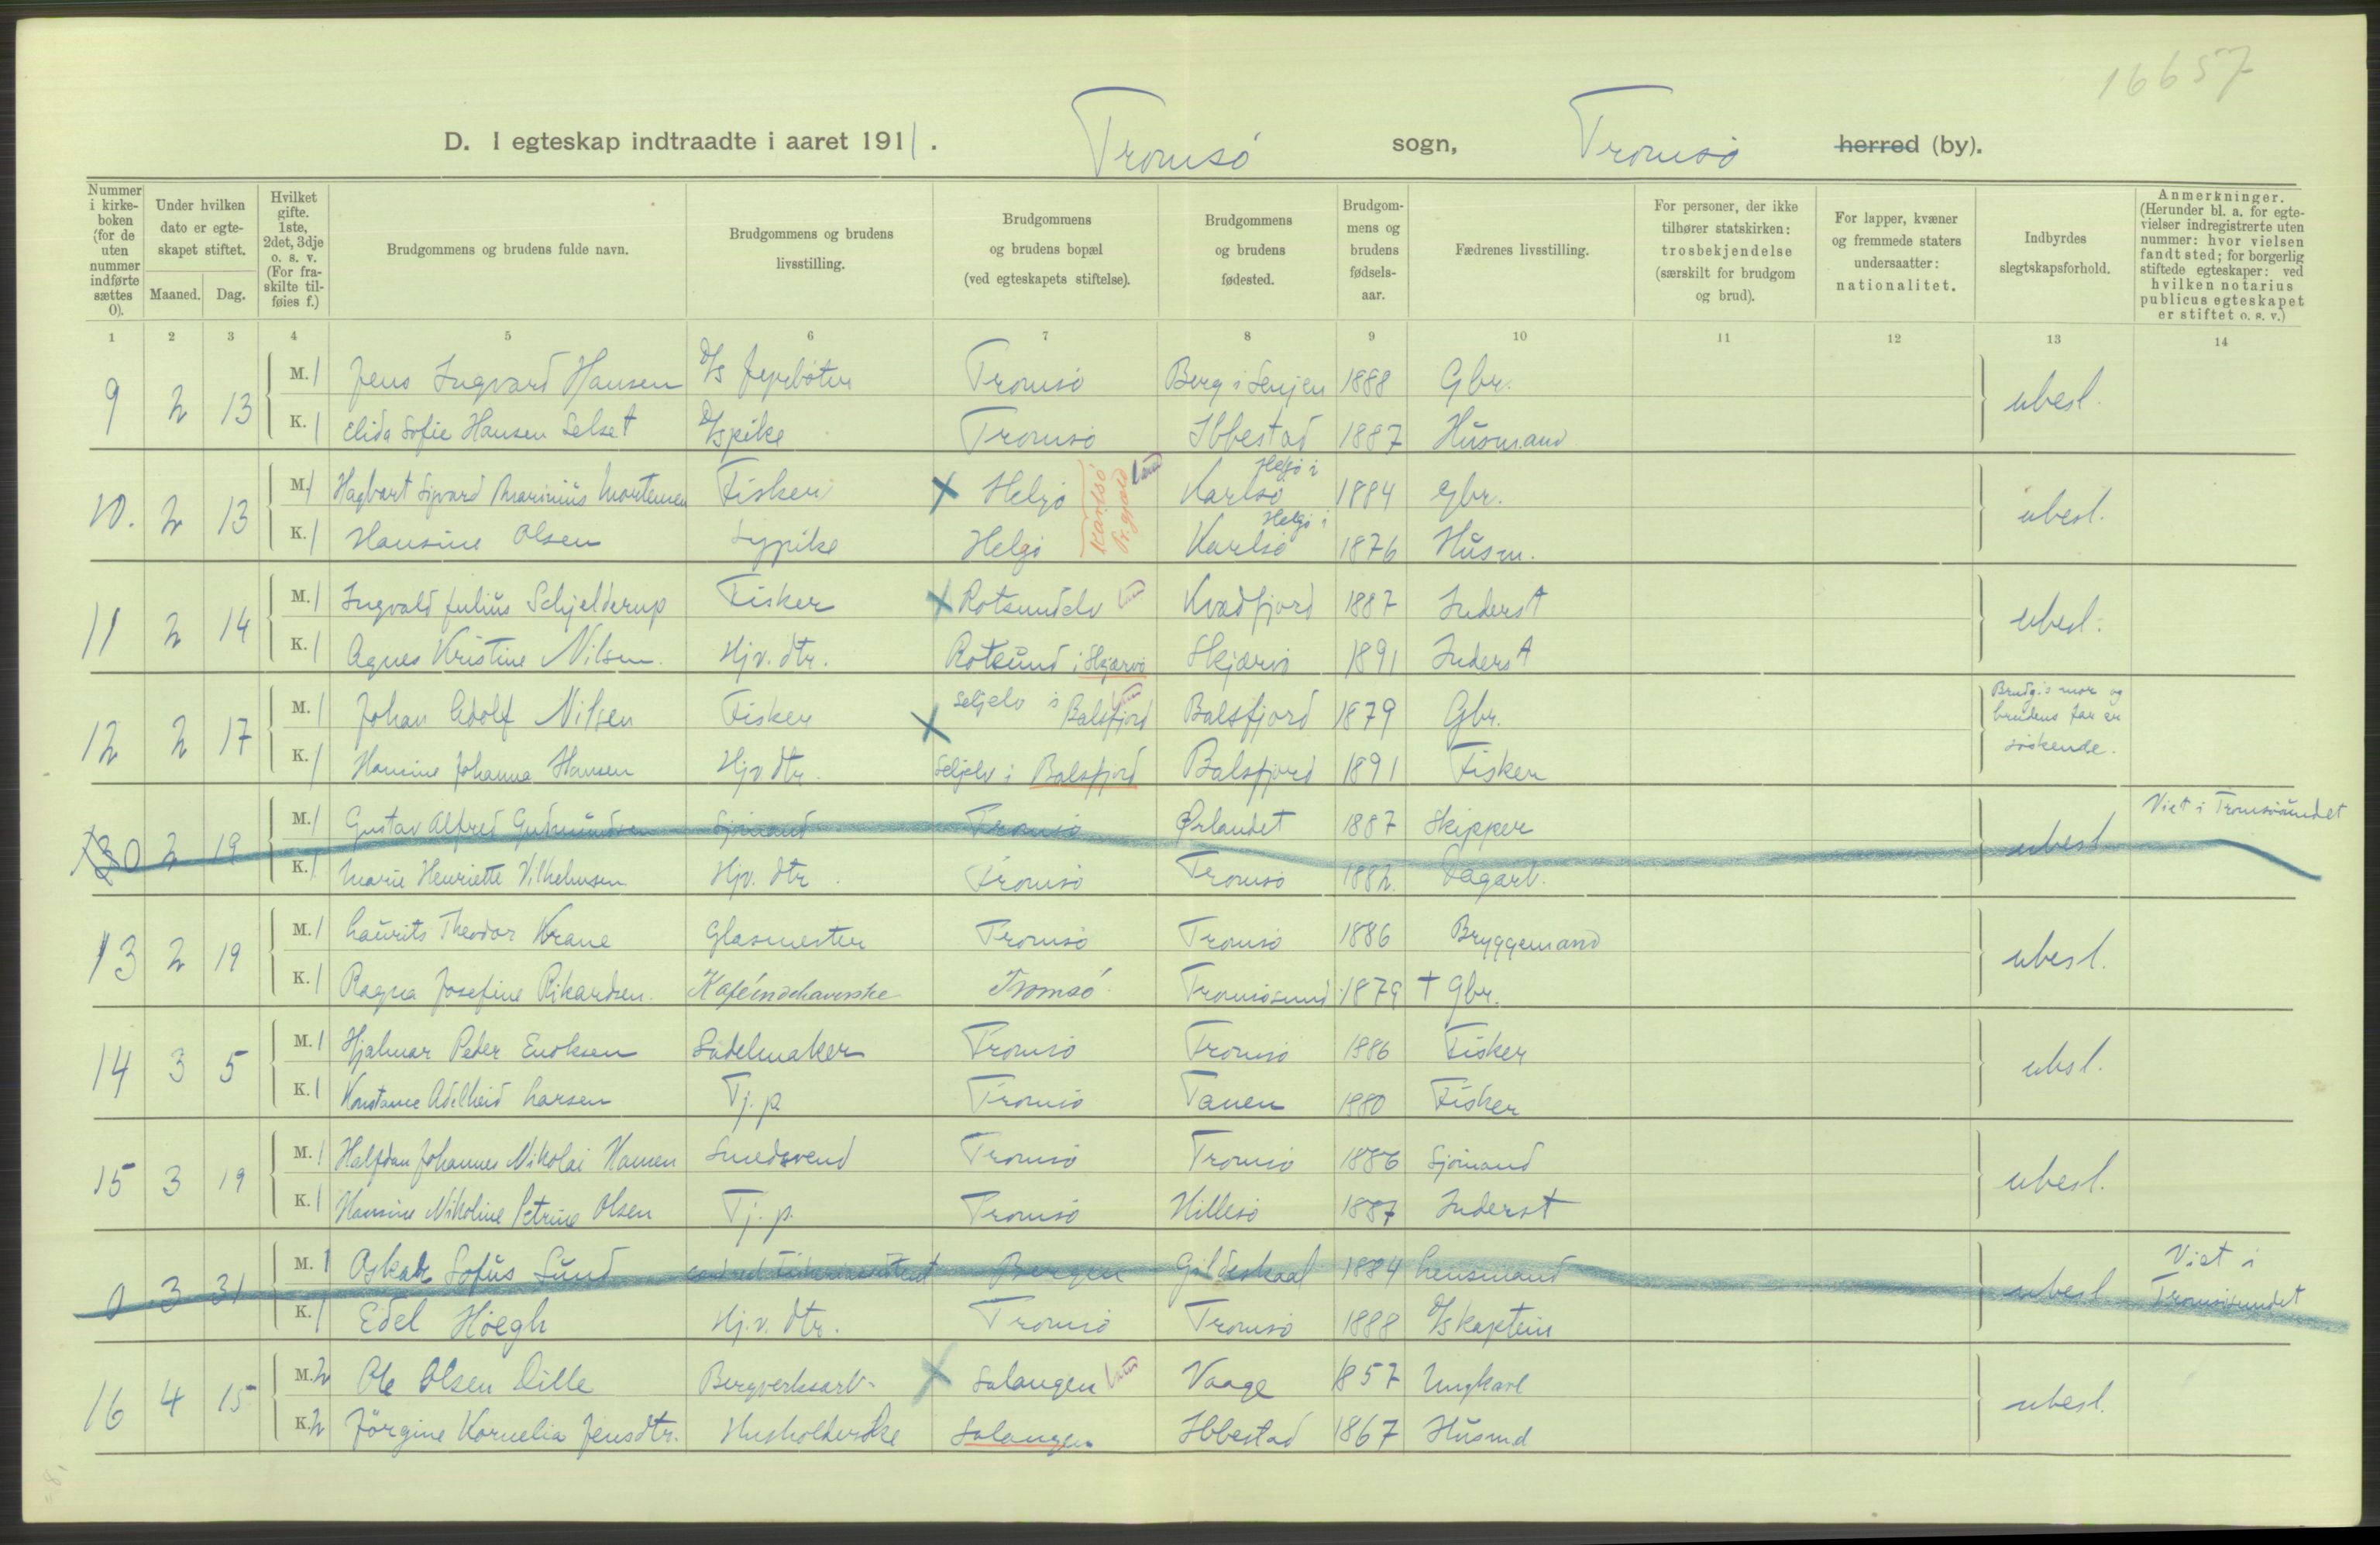 16657
D. I egteskap indtraadte i aaret 1911. Tromsö sogn, Tromsö herred (by).
Nummer i kirkeboken (for de uten nummer indførte sættes 0).
Under hvilken dato er egteskapet stiftet.
Maaned. Dag.
Hvilket gifte. 1ste, 2det, 3dje o. s. v. (For fraskilte tilføies f.)
Brudgommens og brudens fulde navn.
Brudgommens og brudens livsstilling.
Brudgommens og brudens bopæl (ved egteskapets stiftelse).
Brudgommens og brudens fødested.
Brudgommens og brudens fødselsaar.
Fædrenes livsstilling.
For personer, der ikke tilhører statskirken: trosbekjendelse (særskilt for brudgom og brud).
For lapper, kvæner og fremmede staters undersaatter: nationalitet.
Indbyrdes slegtskapsforhold.
Anmerkninger. (Herunder bl. a. for egtevielser indregistrerte uten nummer: hvor vielsen fandt sted; for borgerlig stiftede egteskaper: ved hvilken notarius publicus egteskapet er stiftet o. s. v.)
1 2 3 4 5 6 7 8 9 10 11 12 13 14
9 2 13 M. 1 Jens Ingvard Hansen D/S fyrböter Tromsö Berg i Senjen 1888 Gbr. ubesl.
K. 1 Elida Sofie Hansen Selset D/S pike Tromsö Ibbestad 1887 Husmand
10. 2 13 M. 1 Hagbart Sigvard Marinius Mortensen Fisker X Helgö Karlsö Pr.gjeld Land Helgö i Karlsö 1884 Gbr. ubesl.
K. 1 Hansine Olsen Sypike Helgö Helgö i Karlsö 1876 Husm.
11 2 14 M. 1 Ingvald Julius Schjelderup Fisker X Rotsundelv Land Kvædfjord 1887 Inderst ubesl.
K. 1 Agnes Kristine Nilsen. Hjv. dtr. Rotsund i Skjærvö Skjærvö 1891 Inderst
12 2 17 M. 1 Johan Adolf Nilsen Fisker X Seljelv i Balsfjord Land Balsfjord 1879 Gbr. Brudg.s mor og brudens far er söskende.
K. 1 Hansine Johanna Hansen Hjv dtr. Seljelv i Balsfjord Balsfjord 1891 Fisker
0 2 19 M. 1 Gustav Alfred Gudmundsen Sjömand Tromsö Ørlandet 1887 Skipper ubesl. Viet i Tromsösundet
K. 1 Marie Henriette Vilhelmsen Hjv. dtr. Tromsö Tromsö 1882. Dagarb.
13 2 19 M. 1 Laurits Theodor Krane Glasmester Tromsö Tromsö 1886 Bryggemand ubesl.
K. 1 Ragna Josefine Rikardsen. Kaféindehaverske Tromsö Tromsösund 1879 † Gbr.
14 3 5 M. 1 Hjalmar Peder Enoksen Sadelmaker Tromsö Tromsö 1886 Fisker ubsl.
K. 1 Konstance Adelheid Larsen Tj. p Tromsö Tanen 1880 Fisker
15 3 19 M. 1 Halfdan Johannes Nikolai Hansen Smedsvend Tromsö Tromsö 1886 Sjömand ubesl.
K. 1 Hansine Nikoline Petrine Olsen Tj. p. Tromsö Hillesö 1887 Inderst
0 3 31 M. 1 Oskar Sofus Sund Bergen Gildeskaal 1884 Lensmand ubesl. Viet i Tromsösundet
K. 1 Edel Höegh Hj.v. dtr. Tromsö Tromsö 1888 D/S kaptein
16 4 15 M. 2 Ole Olsen Lille Bergverksarb. X Salangen Land Vaage 1857 Ungkarl ubesl.
K. 2 Jörgine Kornelia Jensdtr. Husholderske Salangen Ibbestad 1867 Husmd